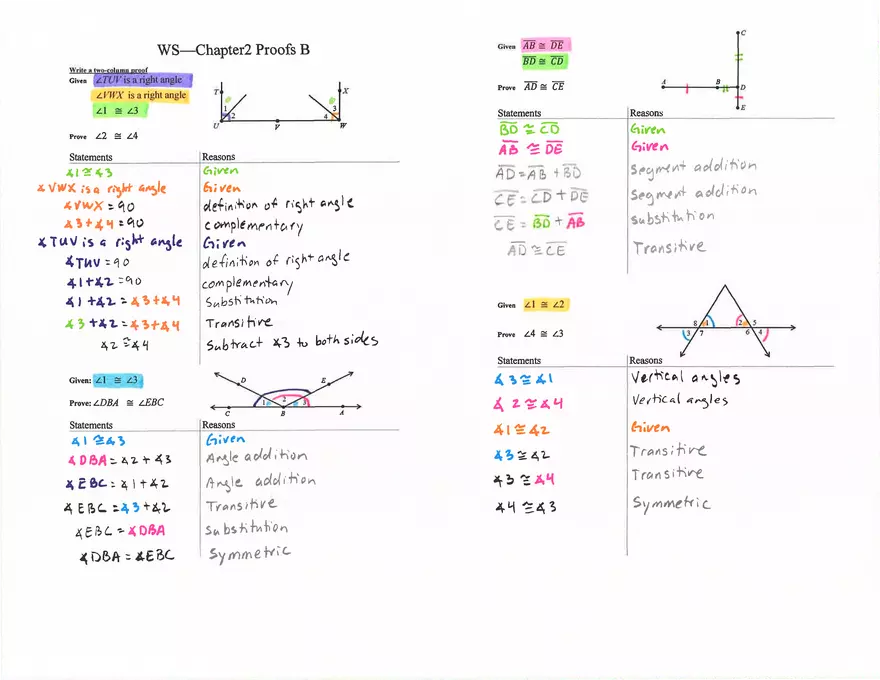 WS—Chapter2 Proofs B
Write a two-column proof
Given ∠TUV is a right angle
∠VWX is a right angle
∠1 ≅ ∠3
Prove ∠2 ≅ ∠4
T
X
1
2
3
4
U
V
W
Statements Reasons
∡1 ≅ ∡3 Given
∡VWX is a right angle Given
∡VWX = 90 definition of right angle
∡3 + ∡4 = 90 complementary
∡TUV is a right angle Given
∡TUV = 90 definition of right angle
∡1 + ∡2 = 90 complementary
∡1 + ∡2 = ∡3 + ∡4 Substitution
∡3 + ∡2 = ∡3 + ∡4 Transitive
∡2 ≅ ∡4 Subtract ∡3 to both sides
Given: ∠1 ≅ ∠3
Prove: ∠DBA ≅ ∠EBC
D
E
1
2
3
C
B
A
Statements Reasons
∡1 ≅ ∡3 Given
∡DBA = ∡2 + ∡3 Angle addition
∡EBC = ∡1 + ∡2 Angle addition
∡EBC = ∡3 + ∡2 Transitive
∡EBC = ∡DBA Substitution
∡DBA = ∡EBC Symmetric
Given AB ≅ DE
BD ≅ CD
Prove AD ≅ CE
C
A
B
D
E
Statements Reasons
BD ≅ CD Given
AB ≅ DE Given
AD = AB + BD Segment addition
CE = CD + DE Segment addition
CE = BD + AB Substitution
AD ≅ CE Transitive
Given ∠1 ≅ ∠2
Prove ∠4 ≅ ∠3
8
1
2
5
3
7
6
4
Statements Reasons
∡3 ≅ ∡1 Vertical angles
∡2 ≅ ∡4 Vertical angles
∡1 ≅ ∡2 Given
∡3 ≅ ∡2 Transitive
∡3 ≅ ∡4 Transitive
∡4 ≅ ∡3 Symmetric